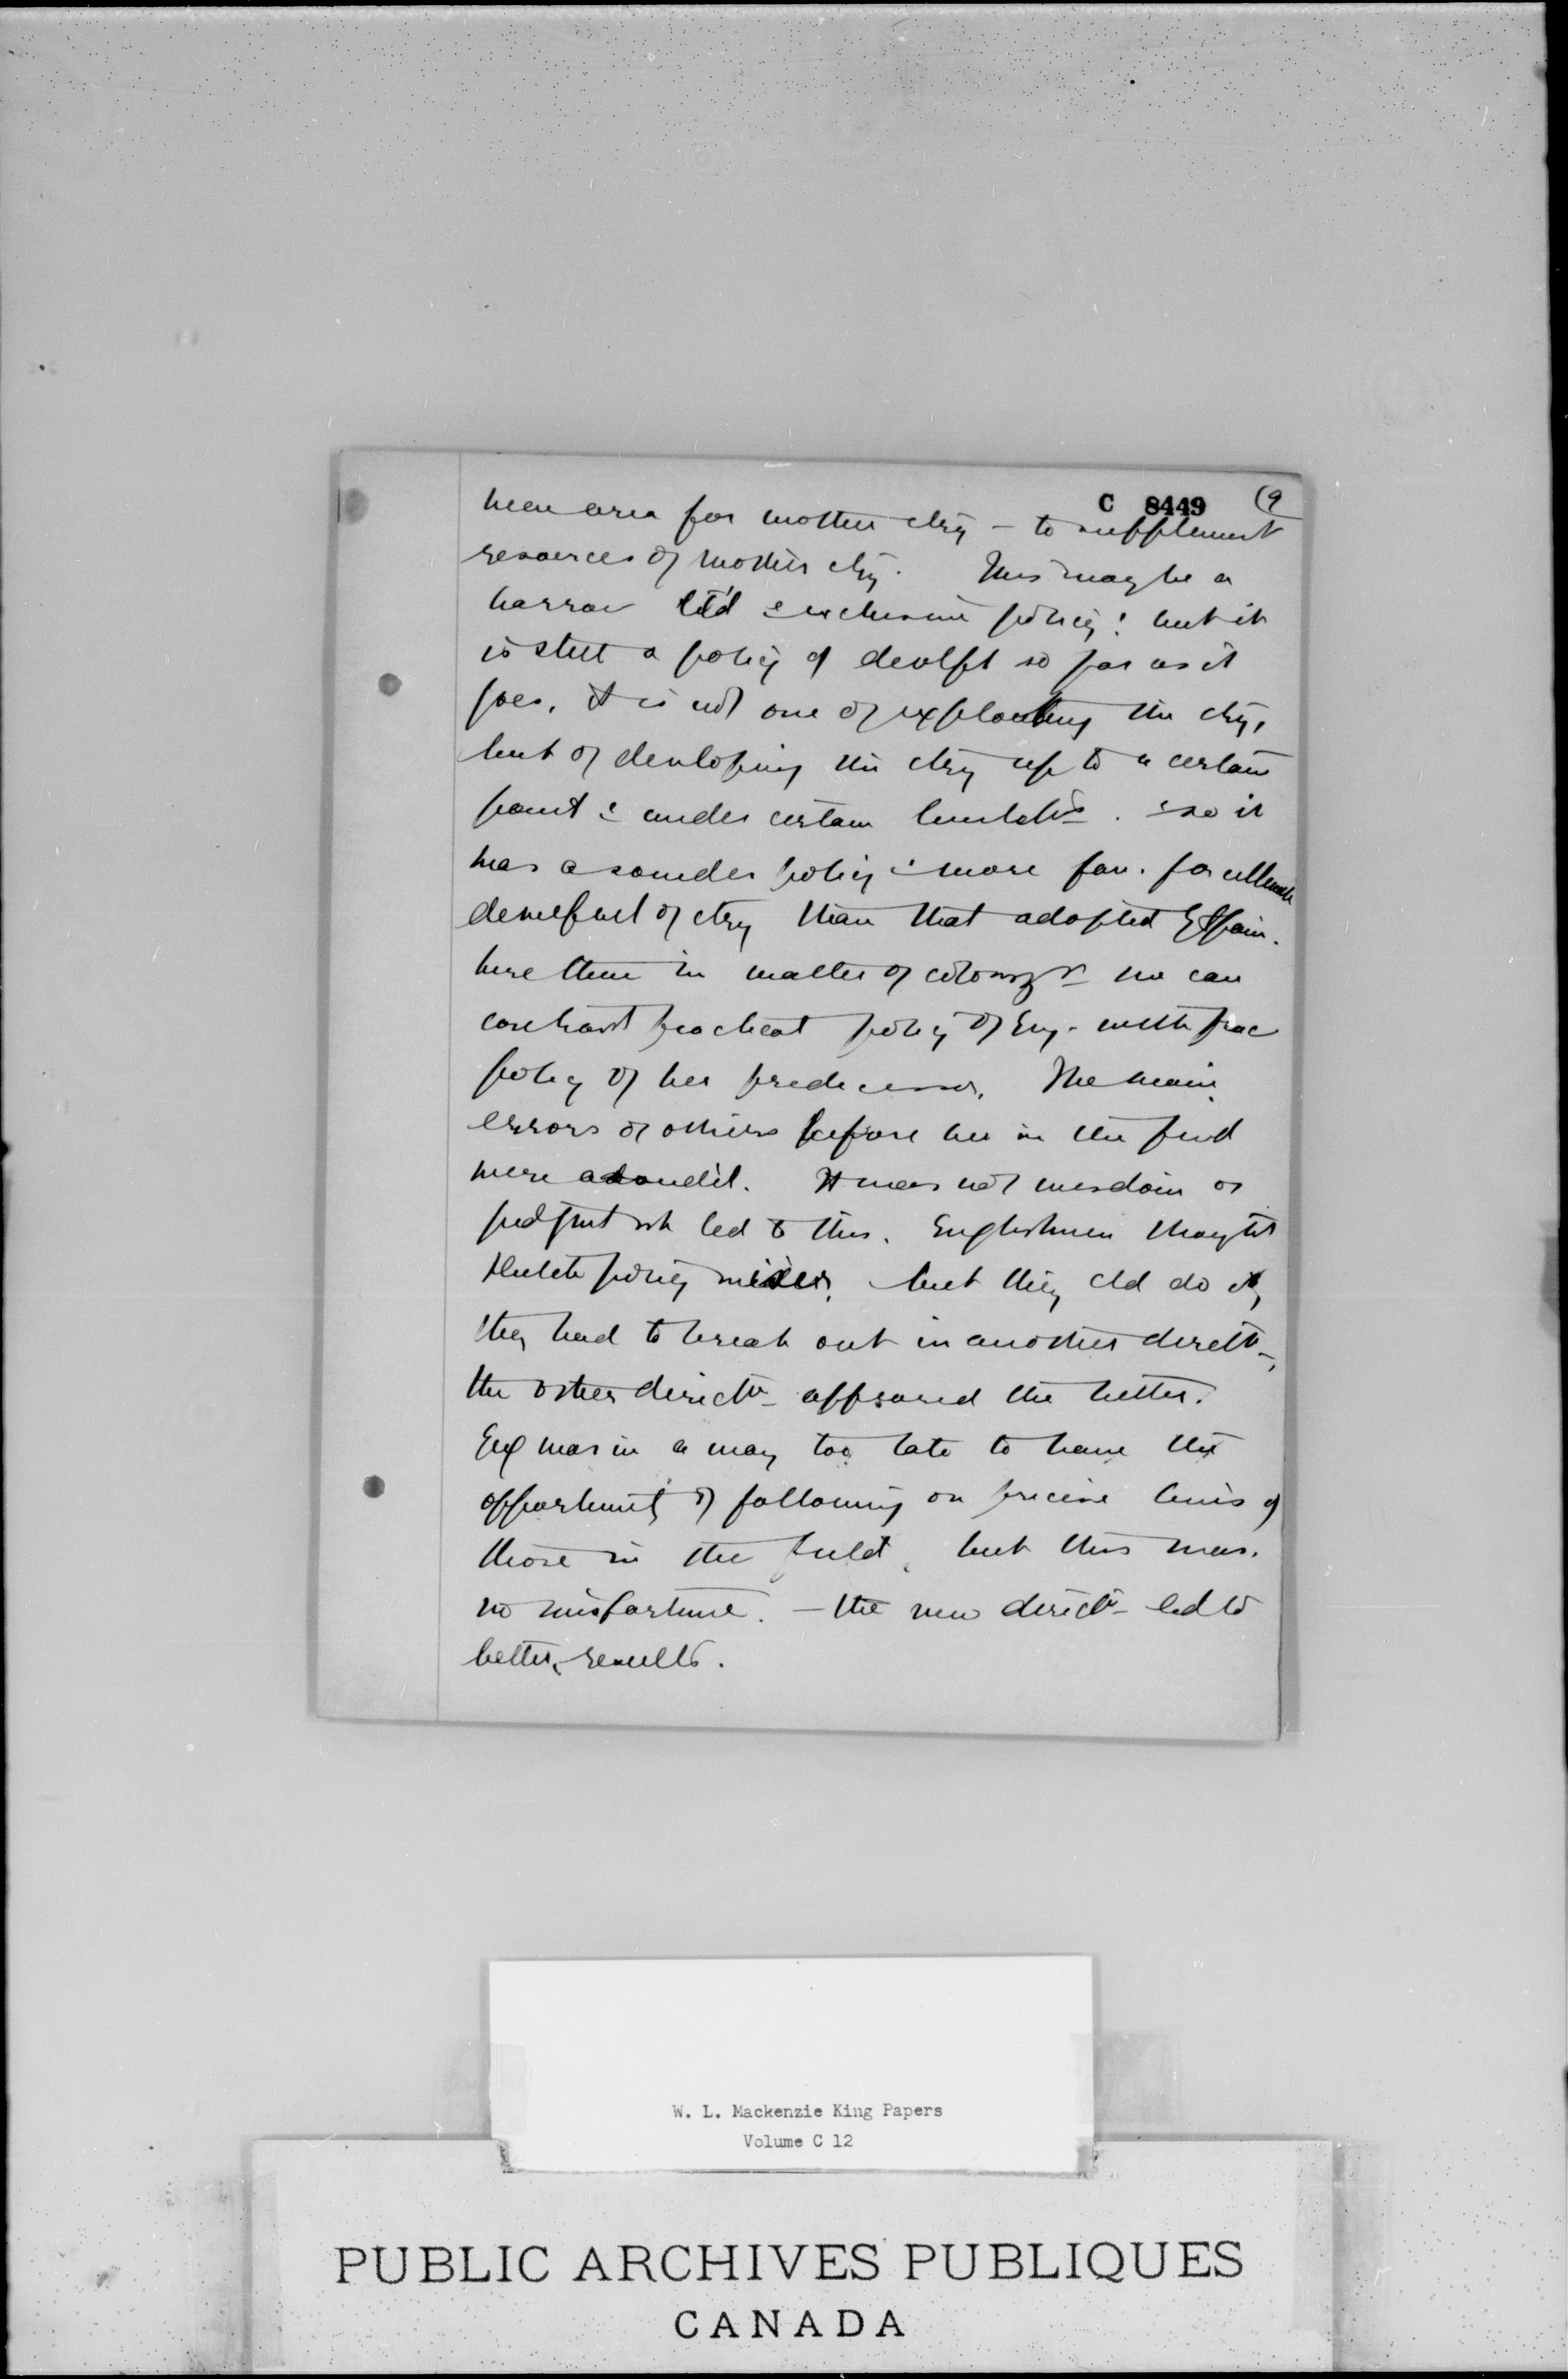 C 8449 (9
new area for mother ctry – to supplement
resources of mother ctry. This may be a
narrow ltd & exclusive policy: but it
is still a policy of devlpt so far as it
goes. It is not one of exploiting the ctry,
but of developing the ctry up to a certain
point & under certain . & so it
was a sounder policy & more fav. for ultimate
of ctry than that adopted by Spain.
here then in matter of we can
contrast practical policy of Eng. with prac
policy of her predecessor. The main
errors of others before her in the field
were avoided. It was not wisdom or
judgmt wh led to this. Englishmen thought
policy but they cld do it,
they had to break out in another directn,
the other directn – appeared the better.
Eng was in a way too late to have the
opportunity of following on precise lines of
those in the field, but this was
no misfortune. – the new directn – led to
better results.
W. L. Mackenzie King Papers
Volume C 12
PUBLIC ARCHIVES PUBLIQUES
CANADA